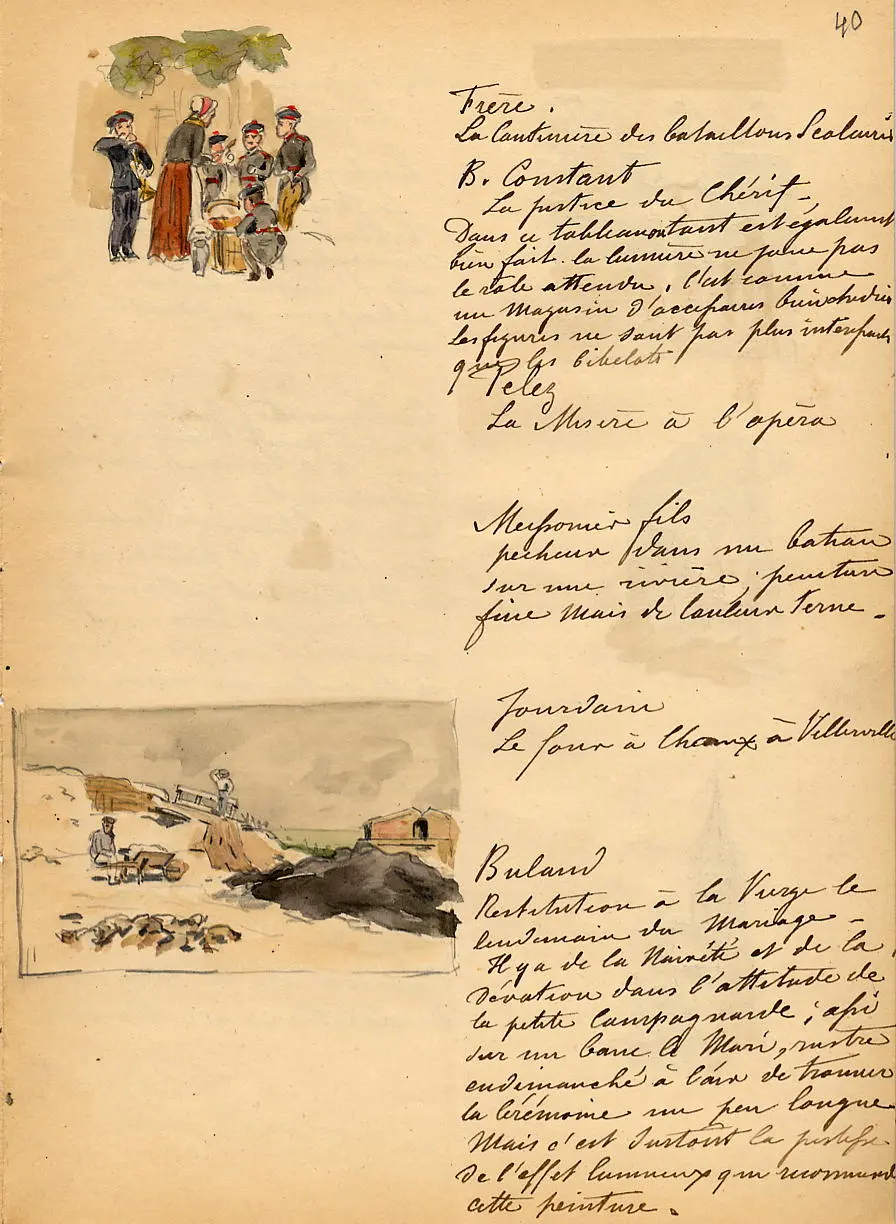 40
Frère.
La Cantinière des bataillons Scolaires
B. Constant
La justice du Chérif -
Dans ce tableau tout est également
bien fait. la lumière ne joue pas
le role attendu. C'est comme
un Magasin d'accessoires bien
Les figures ne sont pas plus interessantes
que les bibelots
Pelez
La Misère à l'opéra
Meissonier fils
pecheur dans un bateau
sur une rivière, peinture
fine Mais de Couleur Terne -
Jourdain
Le four à Chaux à Villerville
Buland
Restitution à la Vierge le
lendemain du Mariage -
Il y a de la Naïveté et de la
Dévotion dans l'attitude de
la petite Campagnarde ; assis
sur un banc le Mari, rustre
endimanché à l'air de trouver
la Cérémonie un peu longue
Mais c'est Surtout la justesse
De l'effet lumineux qui recommande
cette peinture.